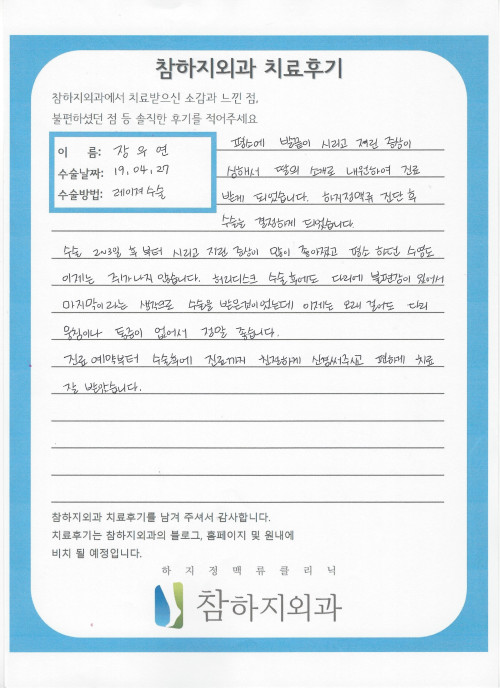 참하지외과 치료후기
참하지외과에서 치료받으신 소감과 느낀 점,
불편하셨던 점 등 솔직한 후기를 적어주세요
이 름: 장우연
수술날짜: 19.04.27
수술방법: 레이져수술
평소에 발끝이 시리고 저린 증상이
심해서 딸의 소개로 내원하여 진료
받게 되었습니다. 하지정맥류 진단 후
수술을 결정하게 되었습니다.
수술 2~3일 후부터 시리고 저린 증상이 많이 좋아졌고 평소 하던 수영도
이제는 쥐가 나지 않습니다. 허리디스크 수술 후에도 다리에 불편감이 있어서
마지막이라는 생각으로 수술을 받은것이었는데 이제는 오래 걸어도 다리
뭉침이나 통증이 없어서 정말 좋습니다.
진료 예약부터 수술후에 진료까지 친절하게 신경써주시고 편하게 치료
잘 받았습니다.
참하지외과 치료후기를 남겨 주셔서 감사합니다.
치료후기는 참하지외과의 블로그, 홈페이지 및 원내에
비치 될 예정입니다.
하지정맥류클리닉
참하지외과